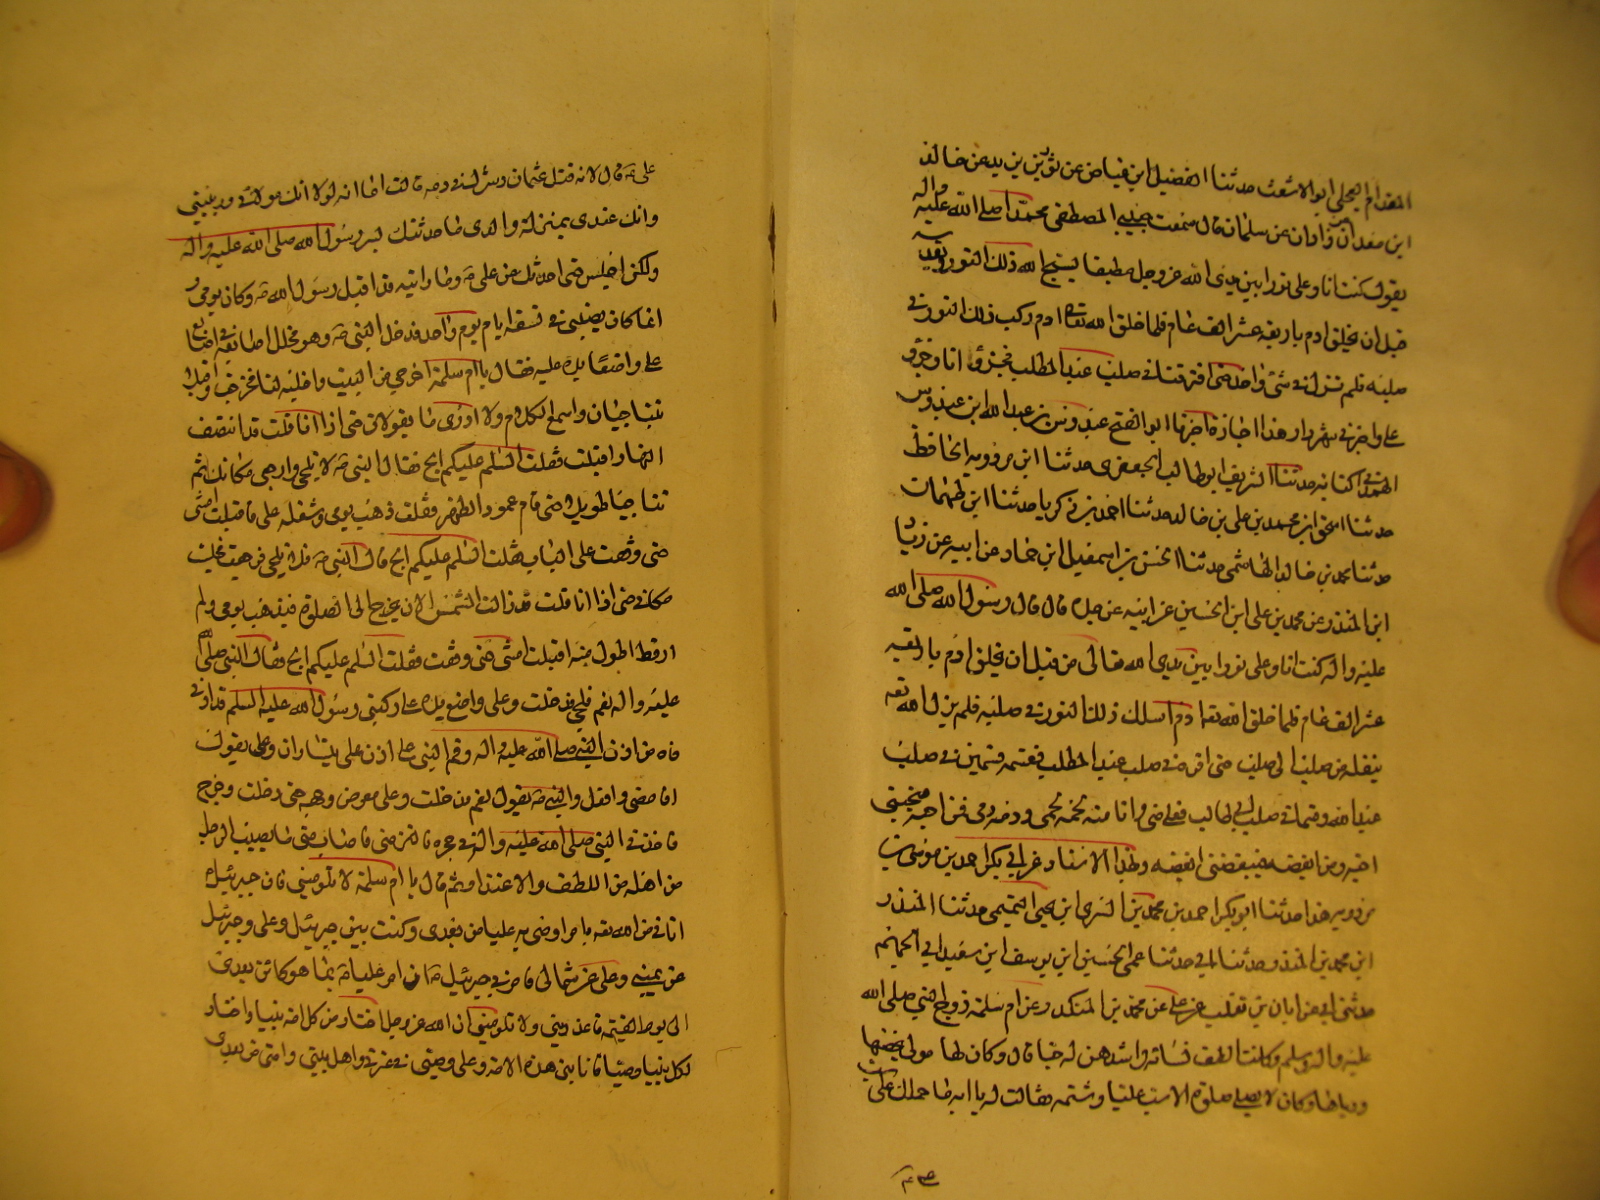 المقدام العجلي ابو الاشعث حدثنا الفضيل ابن عياض عن ثور بن يزيد عن خالد
ابن معدان عن زاذان عن سلمان قال سمعت حبيبي المصطفى محمدا صلى الله عليه واله
يقول كنت انا وعلي نورا بين يدي الله عز وجل مطبقا يسبح الله ذلك النور ويقدسه
قبل ان يخلق ادم باربعة عشر الف عام فلما خلق الله تعالى ادم ركب ذلك النور في
صلبه فلم نزل في شئ واحد حتى افترقنا في صلب عبد المطلب فجزؤ انا وجزؤ
علي واخبرني شهردار هذا اجازة اخبرنا ابو الفتح عبدوس بن عبد الله ابن عبدوس
الهمداني كتابة حدثنا الشريف ابو طالب الجعفري حدثنا ابن مردويه الحافظ
حدثنا اسحق بن محمد بن علي بن خالد حدثنا احمد بن زكريا حدثنا ابن طهمان
حدثنا محمد بن خالد الهاشمي حدثنا الحسن بن اسمعيل ابن حماد عن ابيه عن زياد
ابن المنذر عن محمد بن علي ابن الحسين عن ابيه عن جده قال قال رسول الله صلى الله
عليه واله كنت انا وعلي نورا بين يدي الله تعالى من قبل ان يخلق ادم باربعة
عشر الف عام فلما خلق الله تعه ادم اسلك ذلك النور في صلبه فلم يزل الله تعه
ينقله من صلب الى صلب حتى اقره في صلب عبد المطلب فقسمه قسمين في صلب
عبد الله وقسما في صلب ابي طالب فعلي مني وانا منه لحمه لحمي ودمه دمي فمن احبه فبحبي
احبه ومن ابغضه فببغضي ابغضه وبهذا الاسناد عن ابي بكر احمد بن موسى بن
مردويه هذا حدثنا ابو بكر احمد بن محمد بن السري ابن يحيى التميمي حدثنا المنذر
ابن محمد بن المنذر حدثنا ابي حدثنا عمي الحسين ابن يوسف ابن سعيد ابي الجهم
حدثني ابي عن ابان بن تغلب عن علي عن محمد بن المنكدر عن ام سلمة زوج النبي صلى الله
عليه واله وسلم وكانت الطف نسائه واشدهن له حبا قال وكان لها مولى يحضنها
ورباها وكان لا يصلي صلوة الا سب عليا وشتمه فقالت له يا ابه ما حملك على سب
علي قال لانه قتل عثمان وشرك في دمه قالت اما انه لولا انك مولاي وربيتني
وانك عندي بمنزلة والدي ما حدثتك بسر رسول الله صلى الله عليه واله
ولكن اجلس حتى احدثك عن علي وما رايته قد اقبل رسول الله وكان يومي و
انما كان يصيبني في تسعة ايام يوم واحد فدخل النبي وهو مخلل اصابعه في اصابع
علي واضعا يده عليه فقال يا ام سلمة اخرجي من البيت واخليه لنا فخرجت واقبلا
يتناجيان واسمع الكلام ولا ادري ما يقولان حتى اذا انا قلت قد انتصف
النهار واقبلت فقلت السلم عليكم الج فقال النبي لا تلجي وارجعي مكانك ثم
تناجيا طويلا حتى قام عمود الظهر فقلت ذهب يومي وشغله علي فاقبلت امشي
حتى وقفت على الباب فقلت السلم عليكم الج فقال النبي فلا تلجي فرجعت فجلست
مكاني حتى اذا انا قلت قد زالت الشمس الان يخرج الى الصلوة فيذهب يومي ولم
ار قط اطول منه اقبلت امشي حتى وقفت فقلت السلم عليكم الج فقال النبي صلى الله
عليه واله نعم فلجي فدخلت وعلي واضع يده على ركبتي رسول الله عليه السلم قد ادنى
فاه من اذن النبي صلى الله عليه واله وفم النبي على اذن علي يتساران وعلي يقول
افامضي وافعل والنبي يقول نعم فدخلت وعلي معرض وجهه حتى دخلت وخرج
فاخذني النبي صلى الله عليه واله في حجره فالتزمني فاصاب مني ما يصيب الرجل
من اهله من اللطف والاعتذار ثم قال يا ام سلمة لا تلوميني فان جبرئيل
اتاني من الله تعه يامر اوصى به عليا من بعدي وكنت بين جبرئيل وعلي وجبرئيل
عن يميني وعلي عن شمالي فامرني جبرئيل ان امر عليا بما هو كائن بعدي
الى يوم القيمة فاعذريني ولا تلوميني ان الله عز وجل اختار من كل امة نبيا واختار
لكل نبي وصيا فانا نبي هذه الامة وعلي وصيي في عترتي واهل بيتي وامتي من بعدي